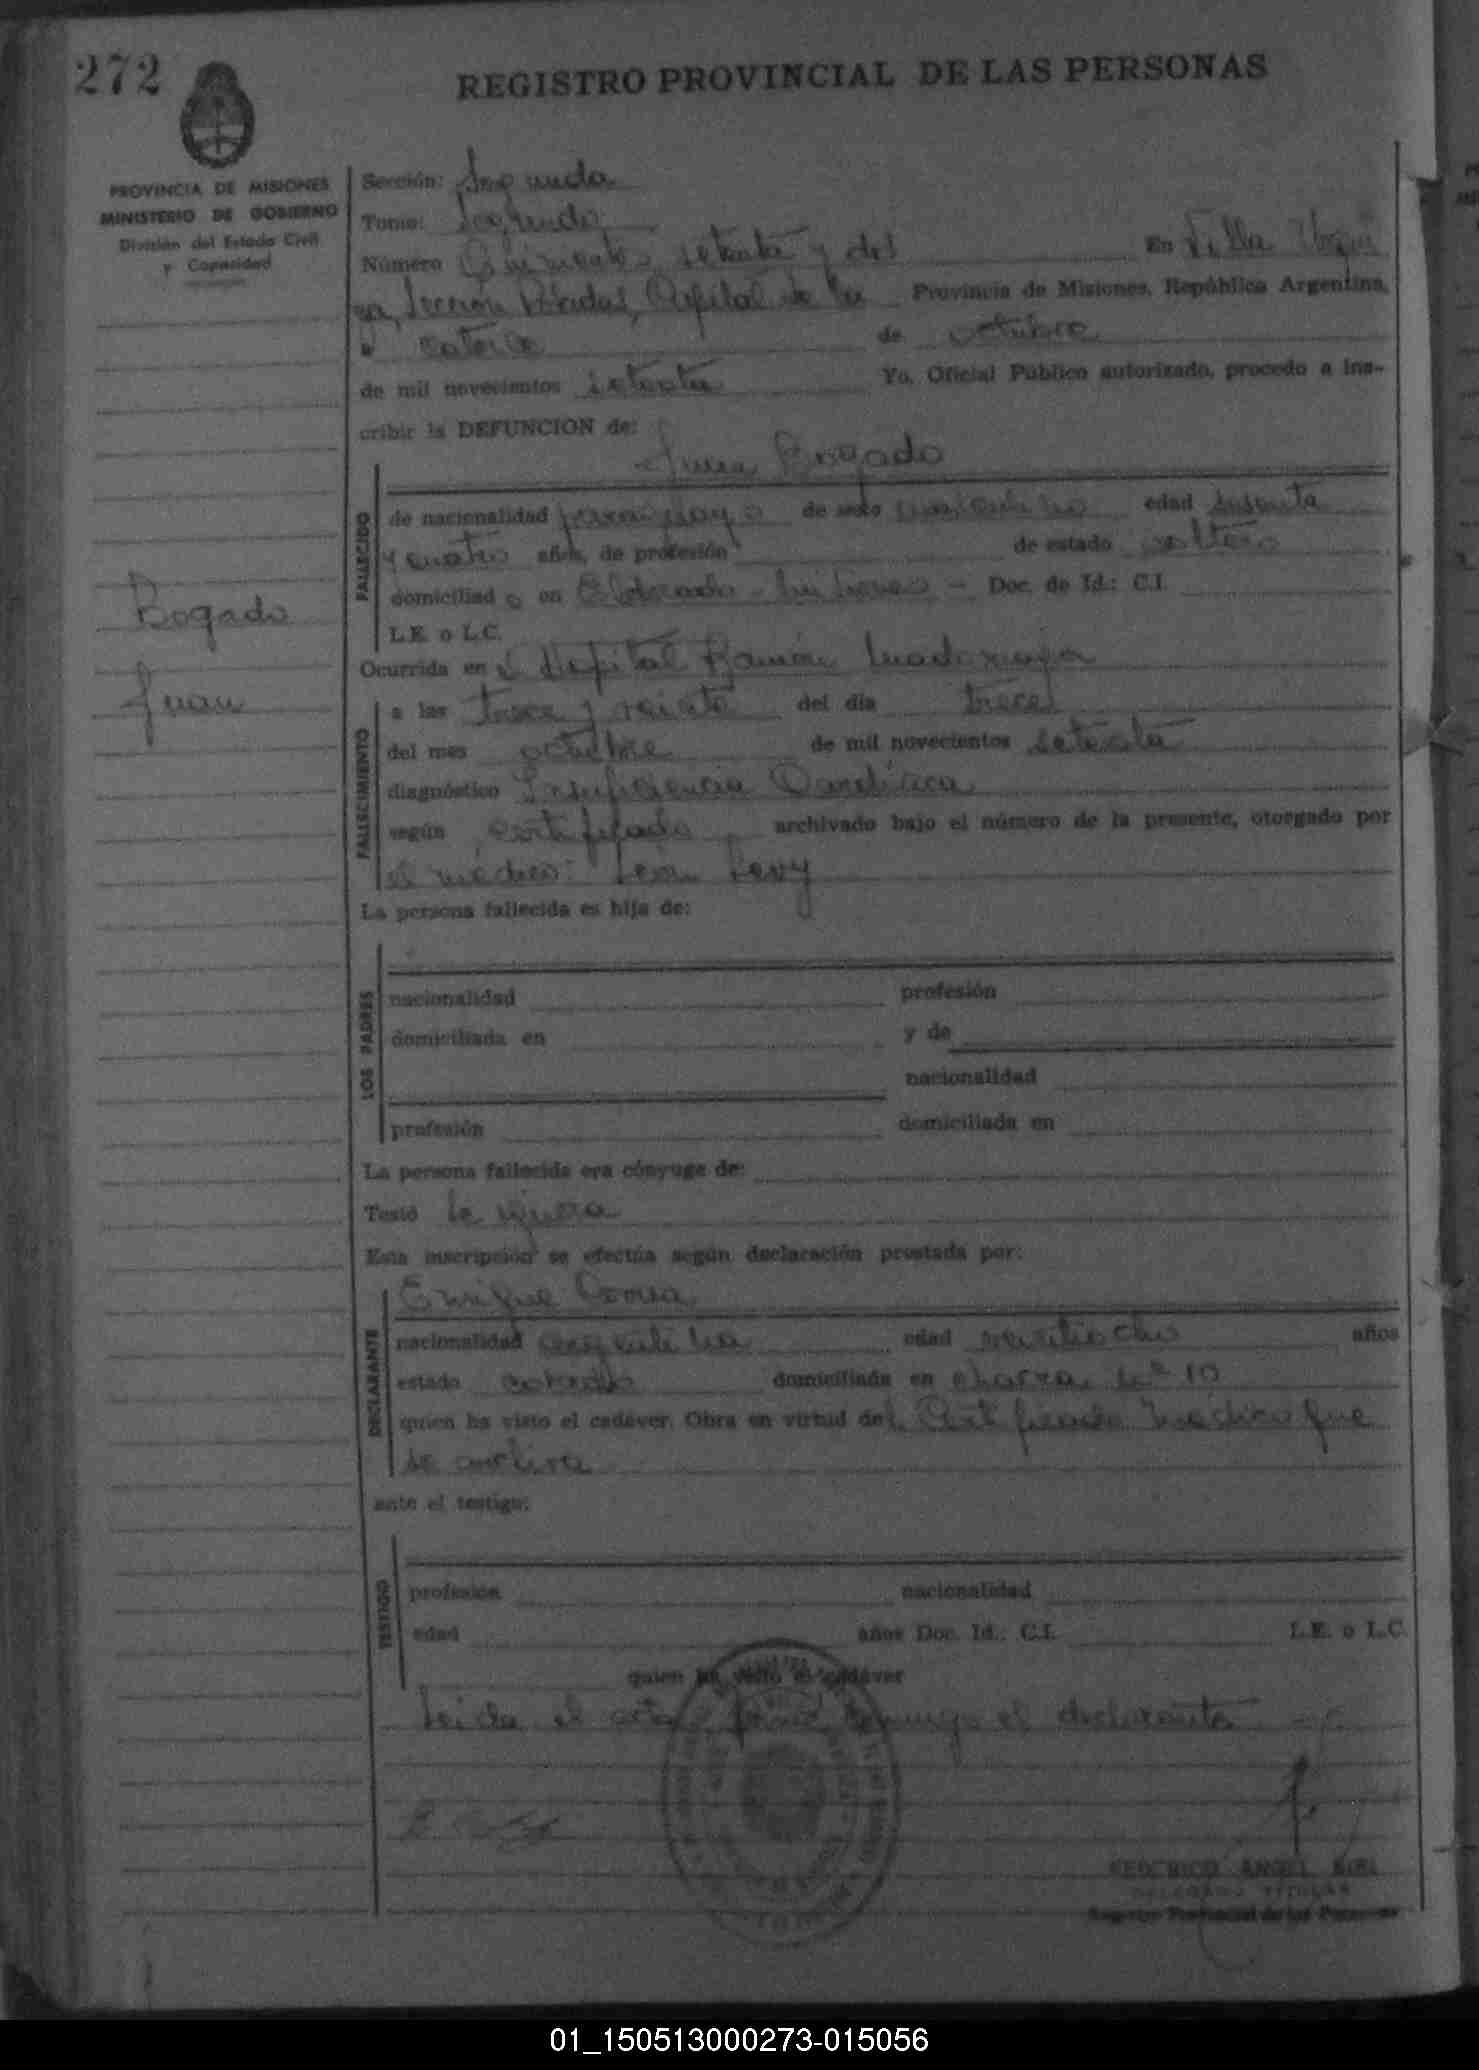 272
REGISTRO PROVINCIAL DE LAS PERSONAS
PROVINCIA DE MISIONES
MINISTERIO DE GOBIERNO
División del Estado Civil
y Capacidad
Bogado
Juan
Sección: Segunda
Tomo: Segundo
Número Quinientos setenta y dos En Villa Urqui
za, Sección Posadas, Capital de la Provincia de Misiones, República Argentina,
a catorce de octubre
de mil novecientos setenta Yo, Oficial Público autorizado, procedo a ins-
cribir la DEFUNCION de:
Juan Bogado
FALLECIDO
de nacionalidad paraguayo de sexo masculino edad sesenta
y cuatro años, de profesión de estado soltero
domiciliado en Eldorado - Misiones - Doc. de Id.: C.I.
L.E. o L.C.
Ocurrida en el Hospital Ramón Madariaga
FALLECIMIENTO
a las trece y veinte del día trece
del mes octubre de mil novecientos setenta
diagnóstico Insuficiencia Cardíaca
según certificado archivado bajo el número de la presente, otorgado por
el médico: León Levy
La persona fallecida es hija de:
LOS PADRES
nacionalidad profesión
domiciliada en y de
nacionalidad
profesión domiciliada en
La persona fallecida era cónyuge de:
Testó se ignora
Esta inscripción se efectúa según declaración prestada por:
Enrique
DECLARANTE
nacionalidad argentina edad veintiocho años
estado casado domiciliada en chacra nº 10
quien ha visto el cadáver. Obra en virtud del Certificado médico que
se archiva
ante el testigo:
TESTIGO
profesión nacionalidad
edad años Doc. Id.: C.I. L.E. o L.C.
quien ha visto el cadáver
Leída el acta firma conmigo el declarante
FEDERICO ANGEL
DELEGADO TITULAR
Registro Provincial de las Personas
01_150513000273-015056